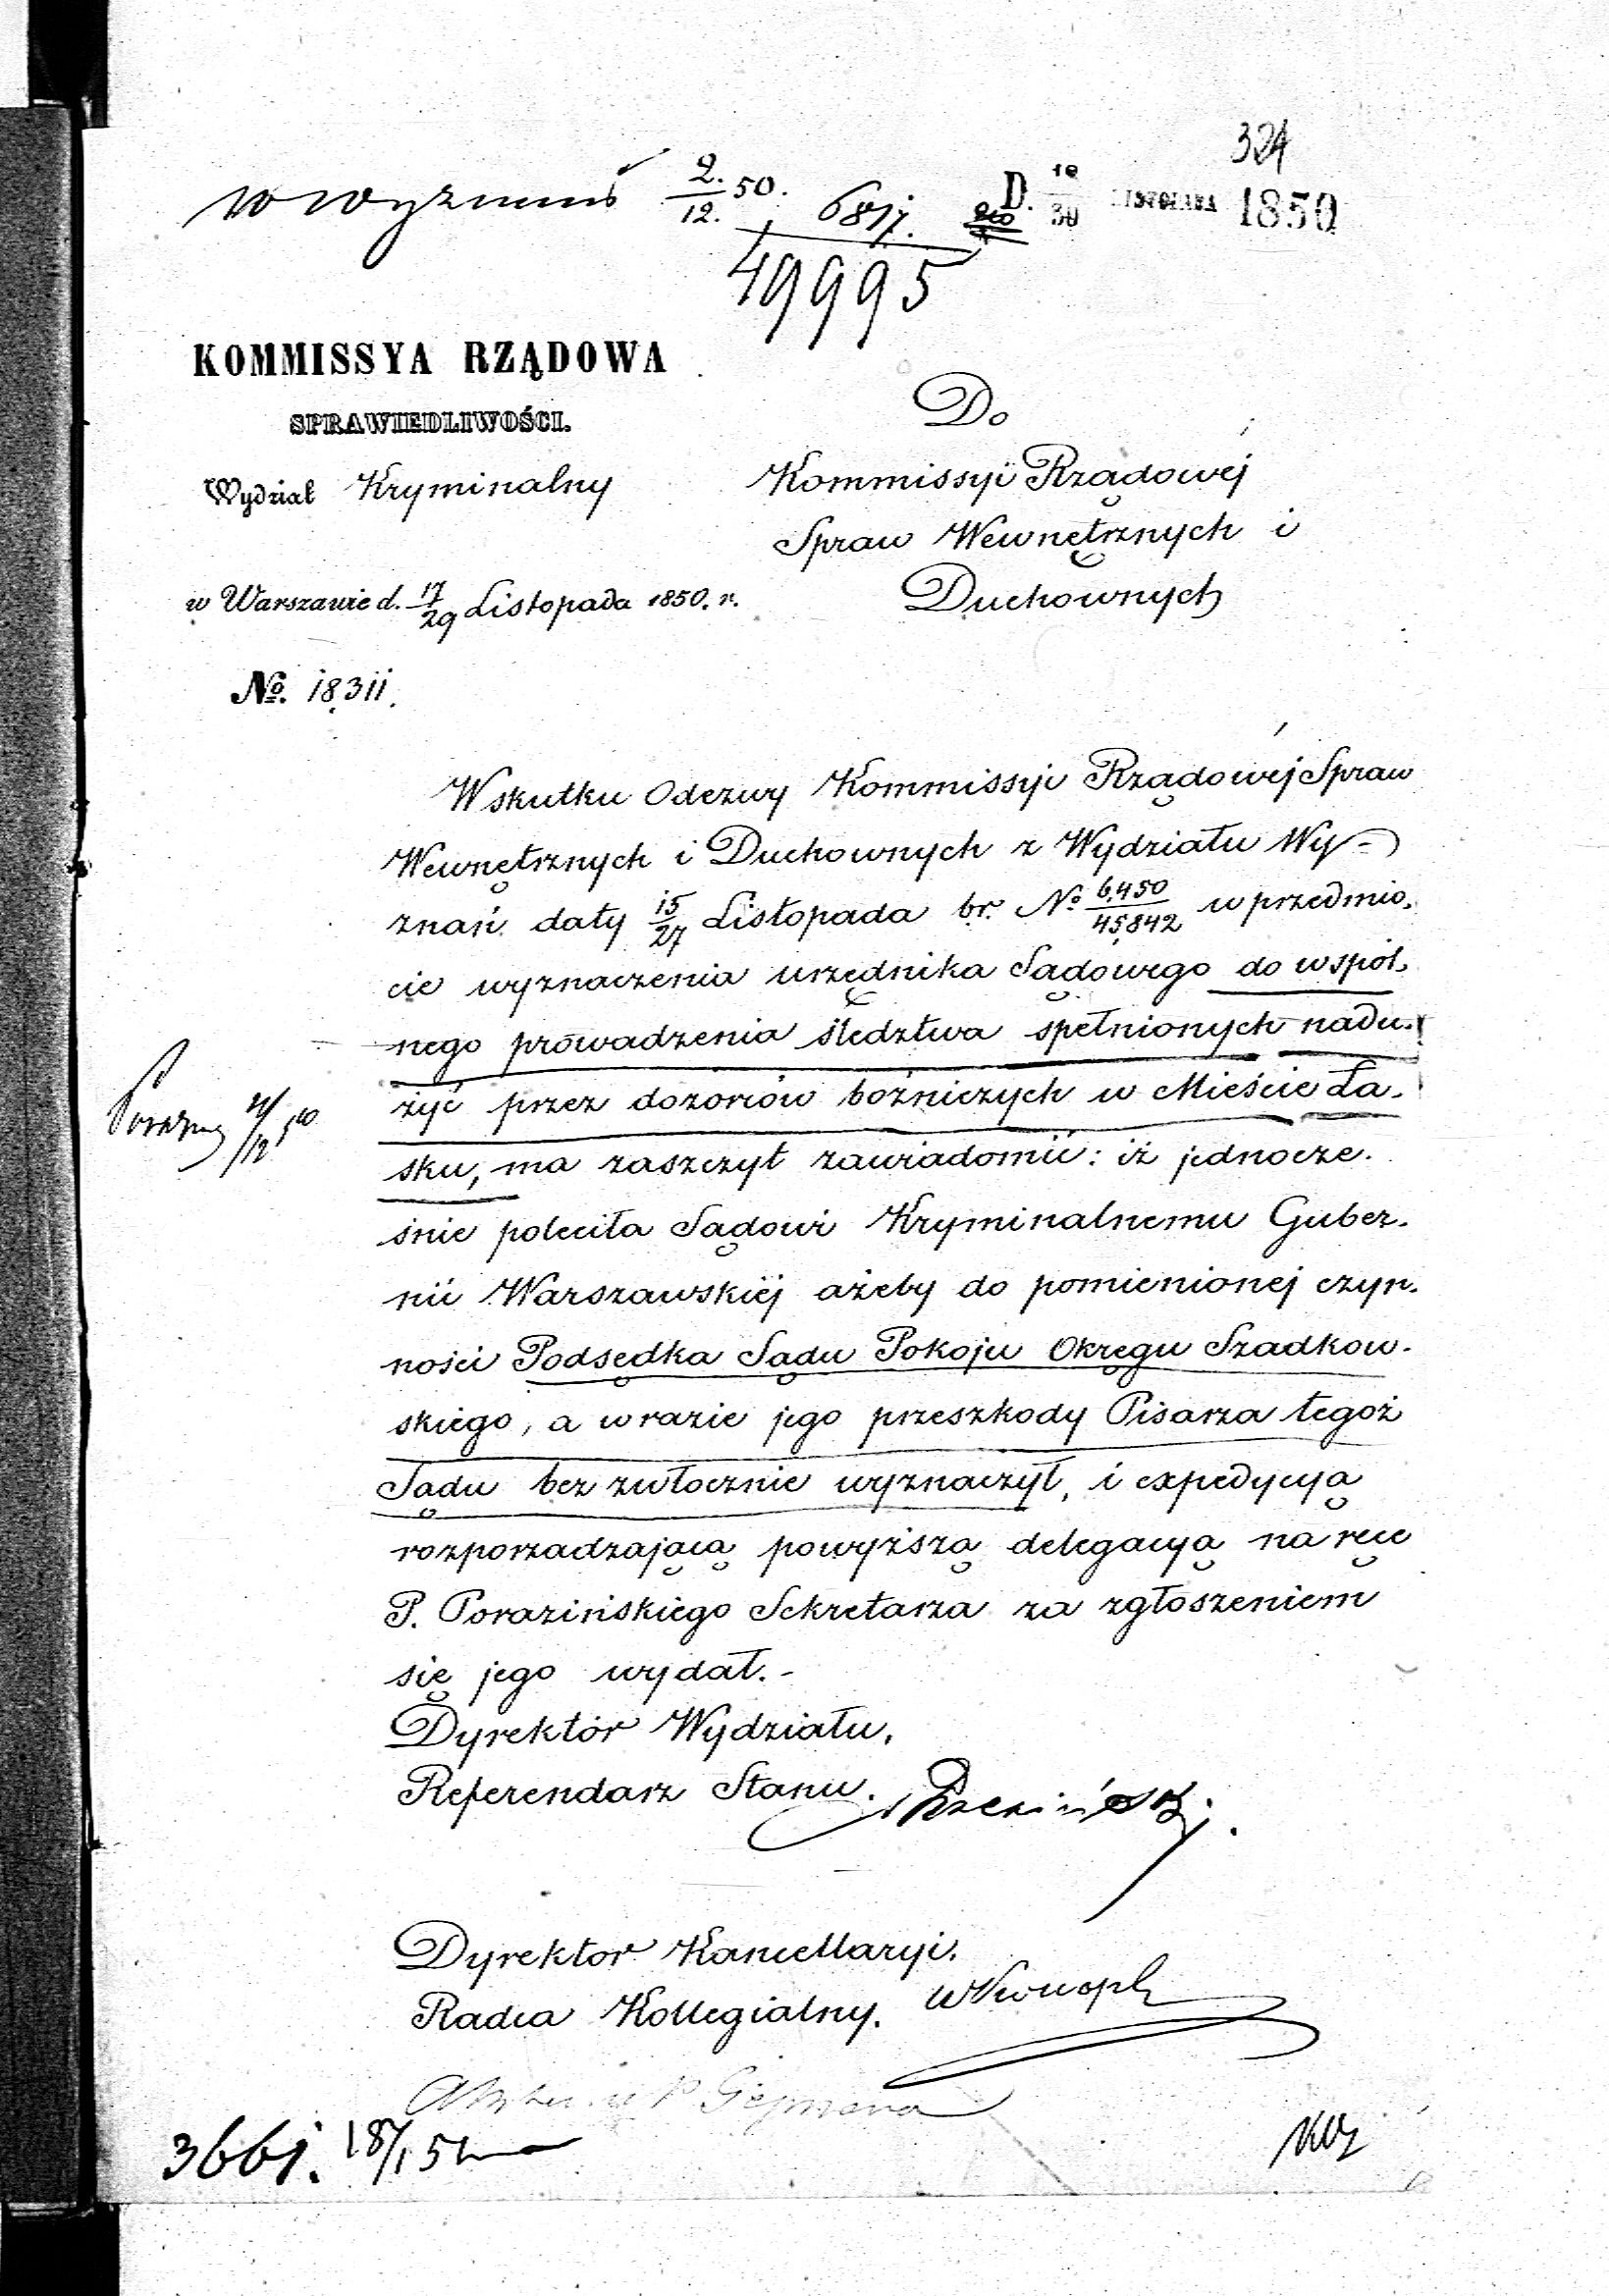 324
w Wyznań 2./12. 50.
6817.
49995
D. 18/30 LISTOPADA 1850
KOMMISSYA RZĄDOWA
SPRAWIEDLIWOŚCI.
Wydział Kryminalny
w Warszawie d. 17/29 Listopada 1850. r.
No. 18,311.
Do
Kommissyi Rządowéj
Spraw Wewnętrznych i
Duchownych
Wskutku Odezwy Kommissyi Rządowéj Spraw
Wewnętrznych i Duchownych z Wydziału Wy-
znań daty 15/27 Listopada br. No 6,450/45,842 w przedmio-
cie wyznaczenia urzędnika Sądowego do wspól-
nego prowadzenia śledztwa spełnionych nadu-
żyć przez dozorców bóżniczych w Mieście Ła-
sku, ma zaszczyt zawiadomić: iż jednocze-
śnie poleciła Sądowi Kryminalnemu Guber-
nii Warszawskiéj ażeby do pomienionej czyn-
ności Podsędka Sądu Pokoju Okręgu Szadkow-
skiego, a w razie jego przeszkody Pisarza tegoż
Sądu bezzwłocznie wyznaczył, i expedycyą
rozporzadzającą powyższą delegacyą na ręce
P. Porazińskiego Sekretarza za zgłoszeniem
się jego wydał.-
Dyrektór Wydziału,
Referendarz Stanu.
Dyrektor Kancellaryi.
Radca Kollegialny.
3661. 18/1 51